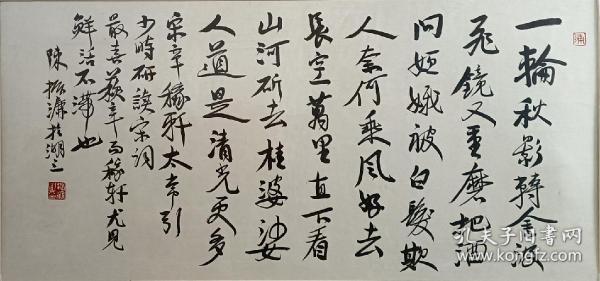 一輪秋影轉金波
飛鏡又重磨把酒
問姮娥被白髮欺
人奈何乘風好去
長空萬里直下看
山河斫去桂婆娑
人道是清光更多
宋辛稼軒太常引
少時研讀宋詞
最喜蘇辛而稼軒尤見
鮮活不滯也
陳振濂於湖上
孔夫子旧书网